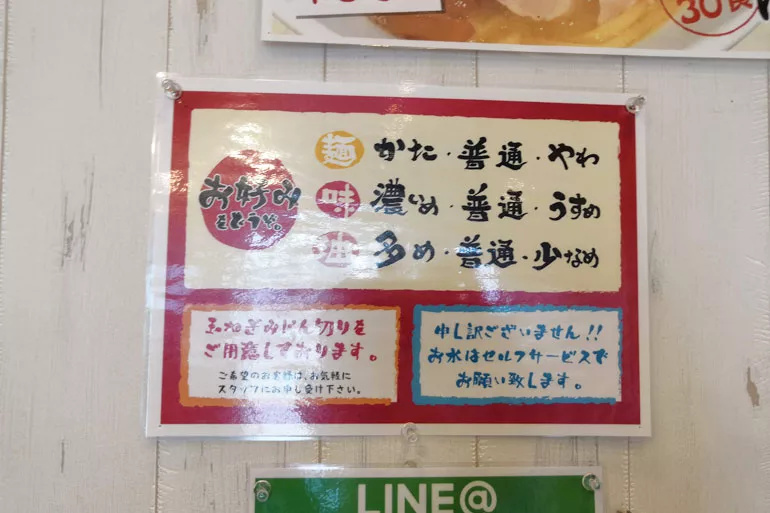 30食
お好み
をどうぞ。
麺 かた・普通・やわ
味 濃いめ・普通・うすめ
油 多め・普通・少なめ
玉ねぎみじん切りを
ご用意しております。
ご希望のお客様は、お気軽に
スタッフにお申し受け下さい。
申し訳ございません!!
お水はセルフサービスで
お願い致します。
LINE@